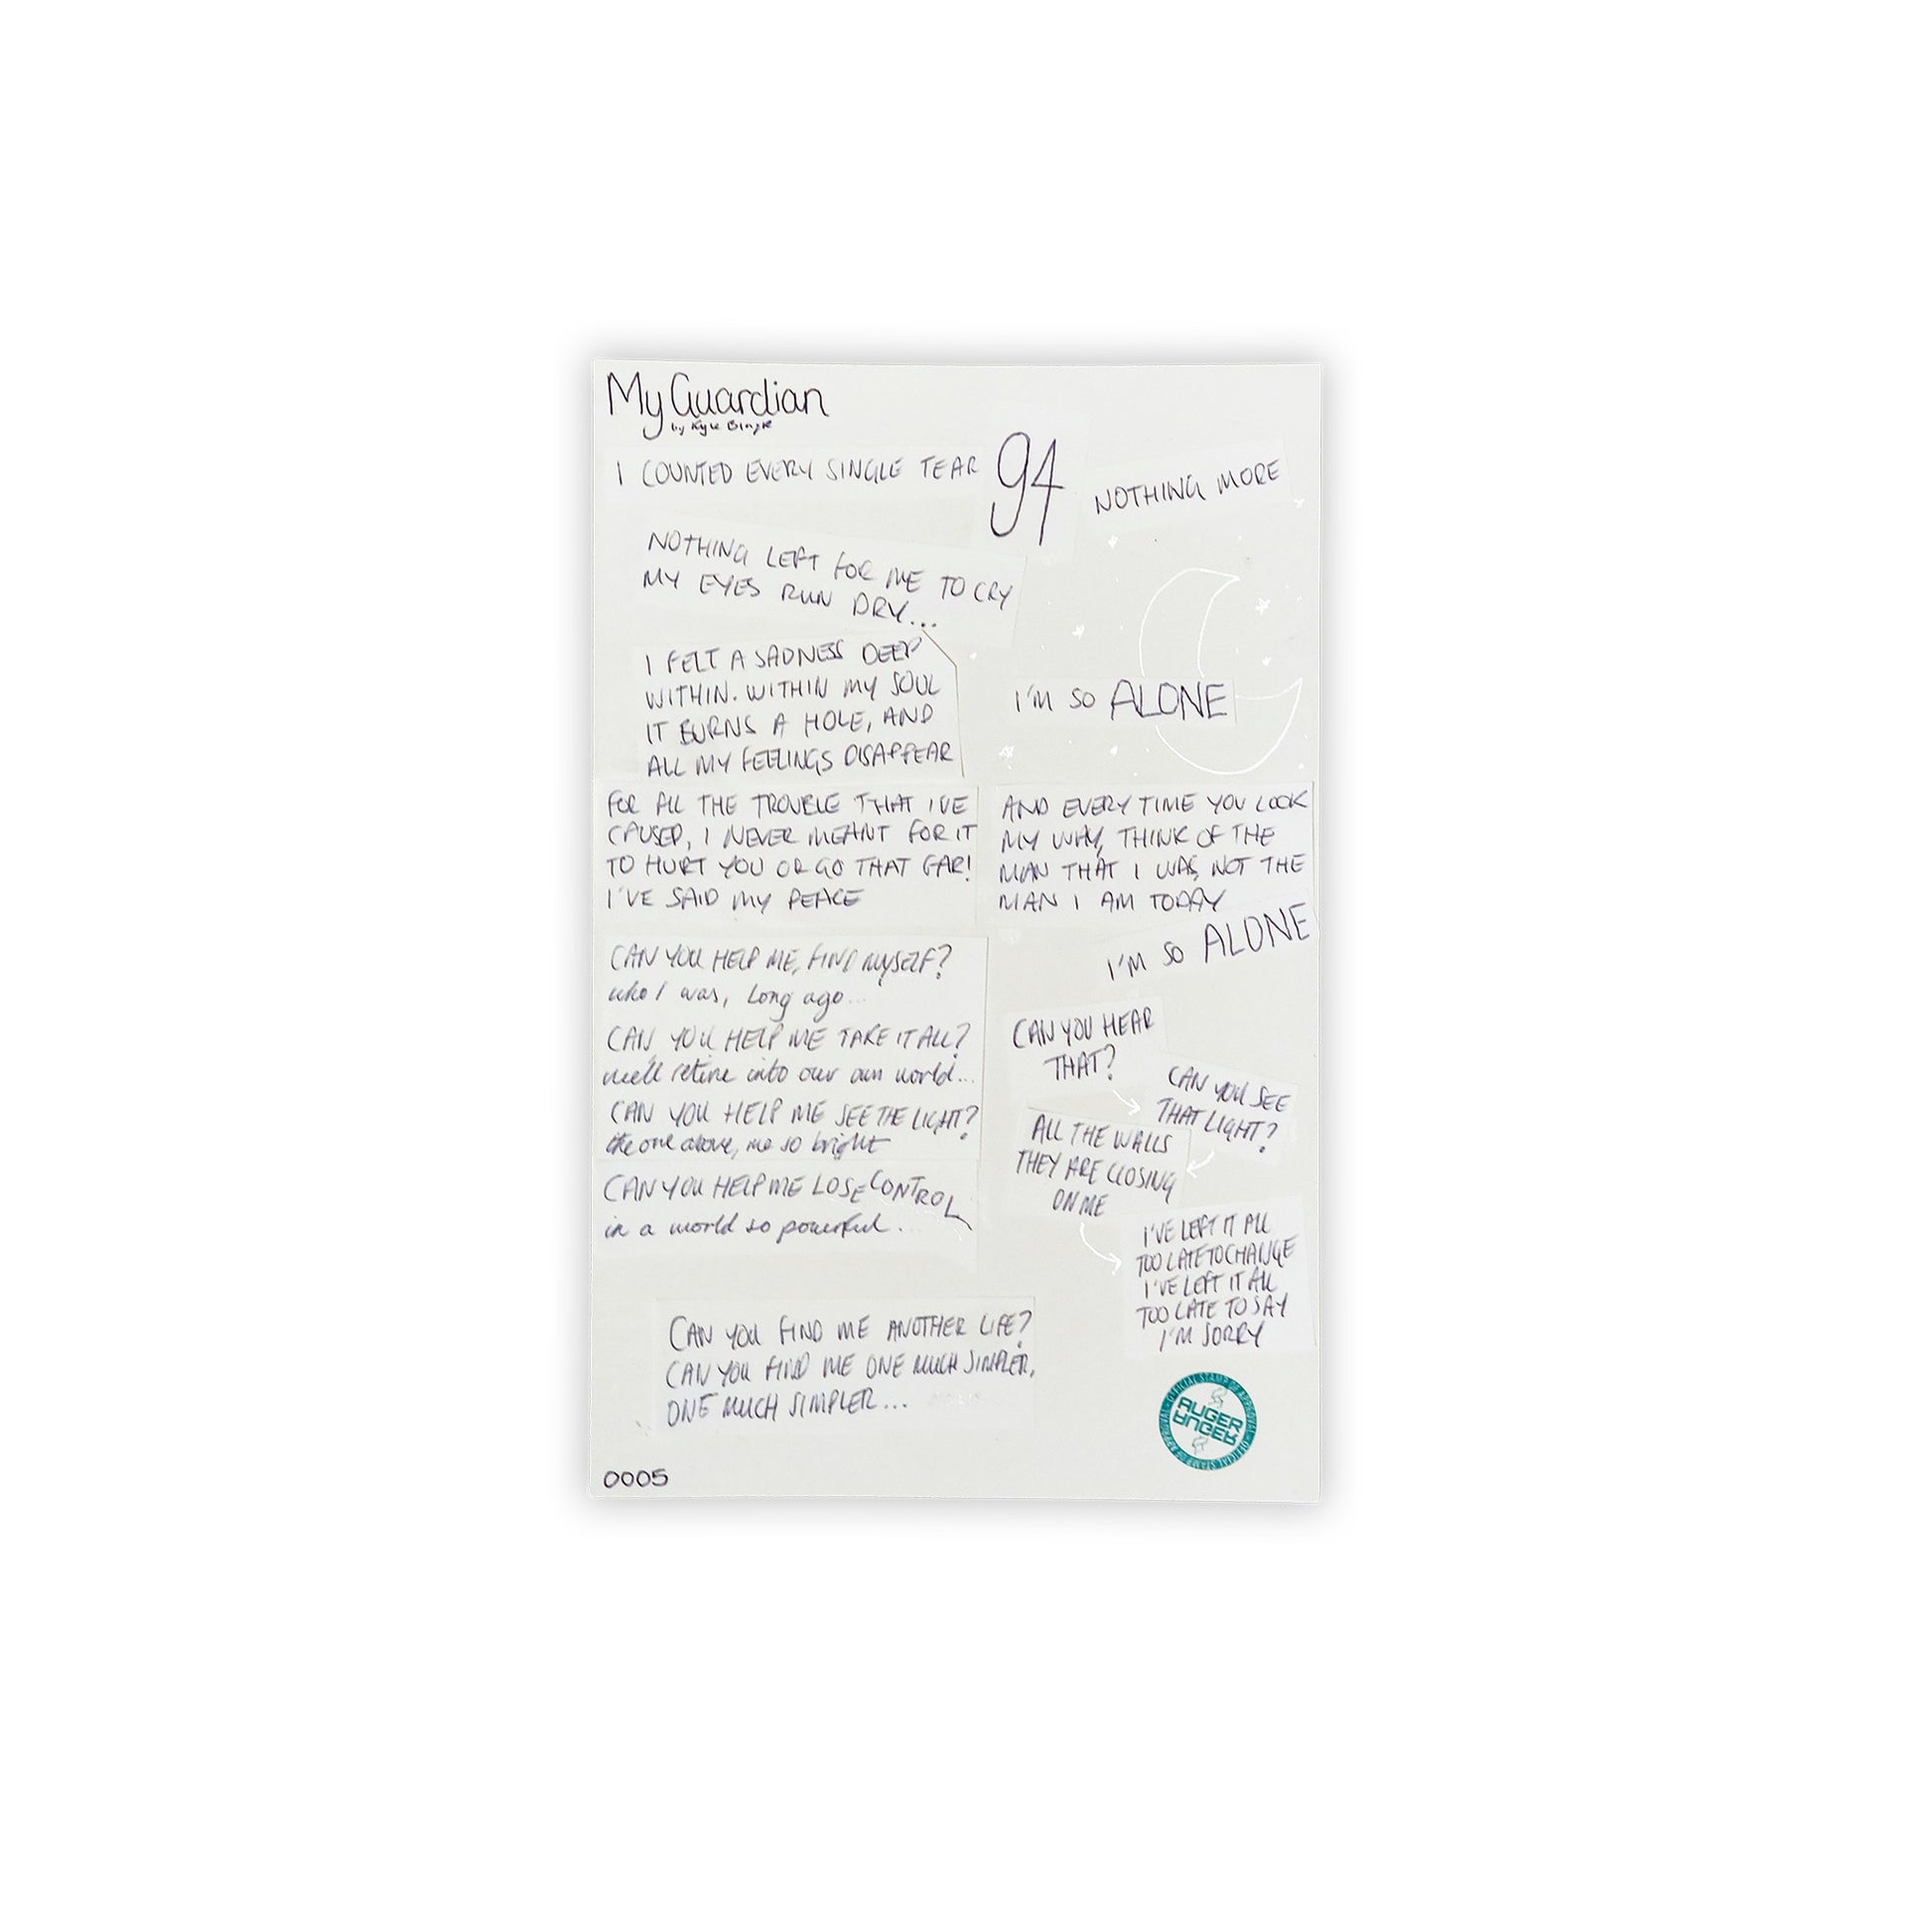 My Guardian
by Kyle
I COUNTED EVERY SINGLE TEAR
94
NOTHING MORE
NOTHING LEFT FOR ME TO CRY
MY EYES RUN DRY...
I FELT A SADNESS DEEP
WITHIN. WITHIN MY SOUL
IT BURNS A HOLE, AND
ALL MY FEELINGS DISAPPEAR
I'M SO ALONE
FOR ALL THE TROUBLE THAT I'VE
CAUSED, I NEVER MEANT FOR IT
TO HURT YOU OR GO THAT FAR!
I'VE SAID MY PEACE
AND EVERY TIME YOU LOOK
MY WAY, THINK OF THE
MAN THAT I WAS, NOT THE
MAN I AM TODAY
I'M SO ALONE
CAN YOU HELP ME, FIND MYSELF?
who I was, long ago...
CAN YOU HELP ME TAKE IT ALL?
we'll retire into our own world...
CAN YOU HELP ME SEE THE LIGHT?
the one above, me so bright
CAN YOU HELP ME LOSE CONTROL
in a world so powerful...
CAN YOU HEAR
THAT?
CAN YOU SEE
THAT LIGHT?
ALL THE WALLS
THEY ARE CLOSING
ON ME
I'VE LEFT IT ALL
TOO LATE TO CHANGE
I'VE LEFT IT ALL
TOO LATE TO SAY
I'M SORRY
CAN YOU FIND ME ANOTHER LIFE?
CAN YOU FIND ME ONE MUCH SIMPLER,
ONE MUCH SIMPLER...
OFFICIAL STAMP OF APPROVAL
AUGER
AUGER
OFFICIAL STAMP OF APPROVAL
0005